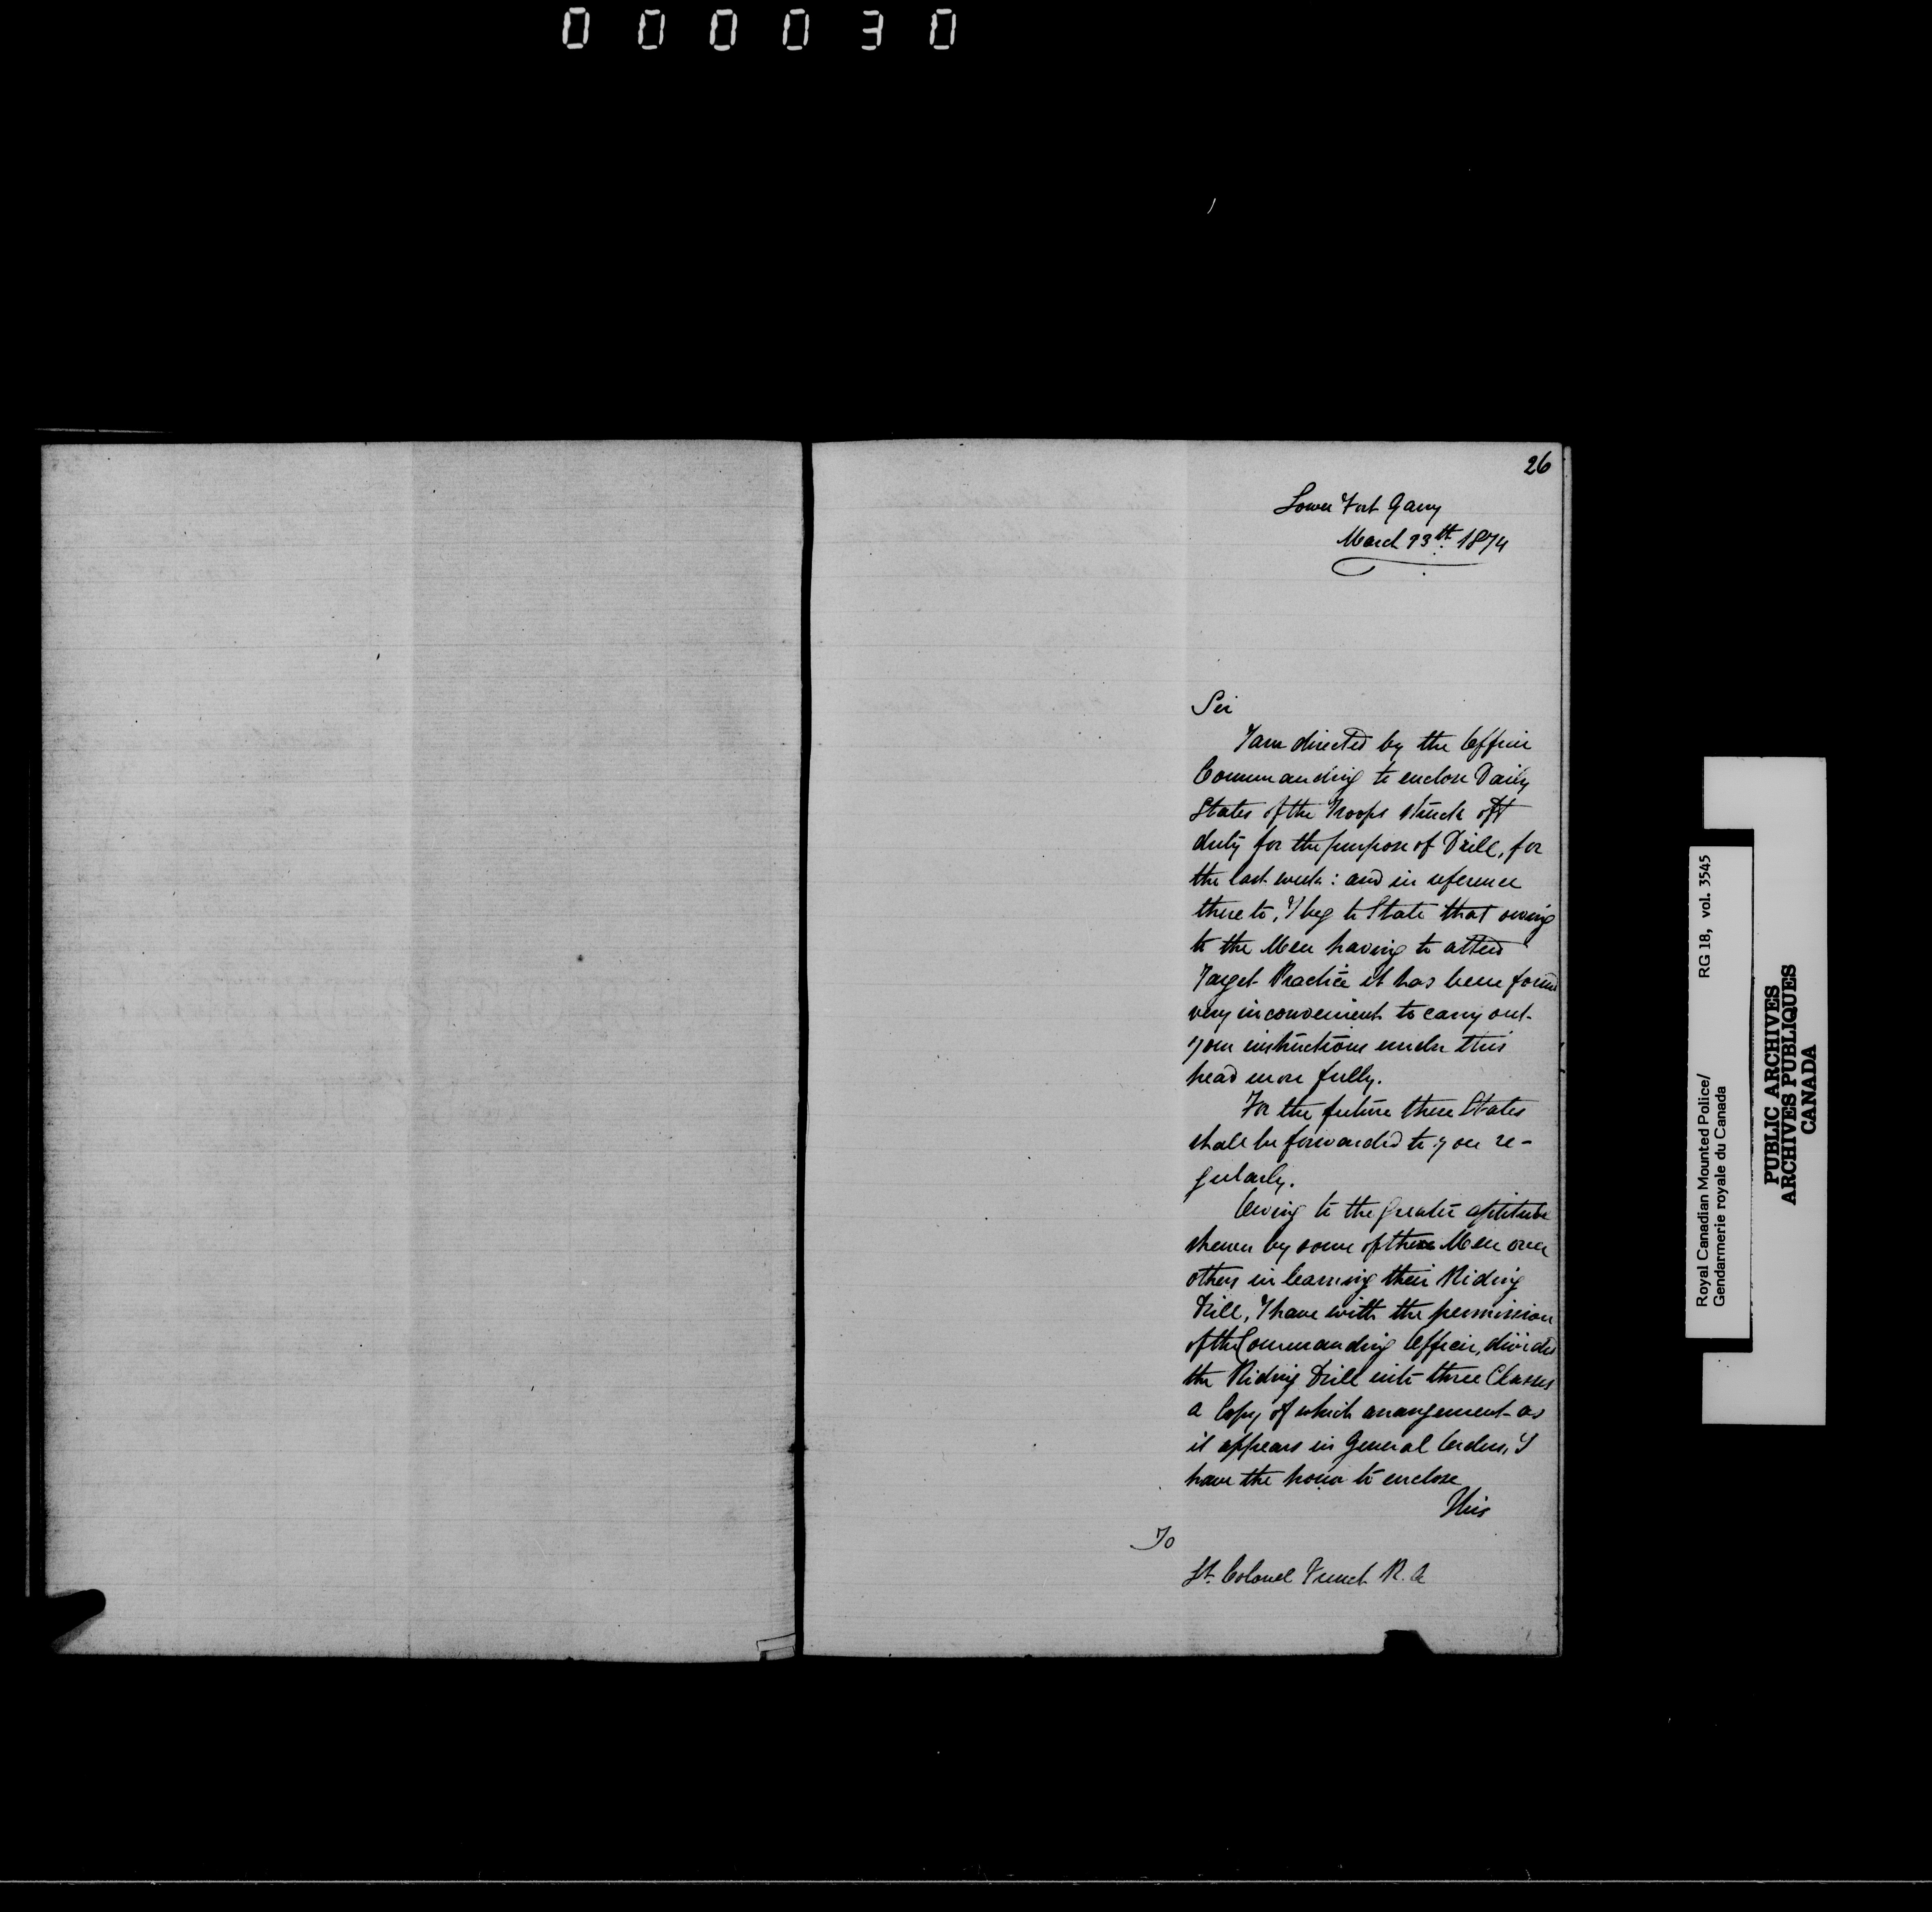 000030
26
Lower Fort Garry
March 13th. 1874
Sir
I am directed by the Officer
Commanding to enclose Daily
States of the Troops struck off
duty for the purpose of Drill, for
the last week: and in reference
there to, I beg to State that owing
to the Men having to attend
Target Practice it has been found
very inconvenient to carry out
your instructions under this
head more fully.
For the future these States
shall be forwarded to you re-
gularly.
Owing to the greater aptitude
shewn by some of these Men over
others in learning their Riding
Drill, I have with the permission
of the Commanding Officer, divided
the Riding Drill into three Classes
a Copy of which arrangement as
it appears in General Orders, I
have the honor to enclose
This
To
Lt. Colonel French R.A
Royal Canadian Mounted Police/ RG 18, vol. 3545
Gendarmerie royale du Canada
PUBLIC ARCHIVES
ARCHIVES PUBLIQUES
CANADA